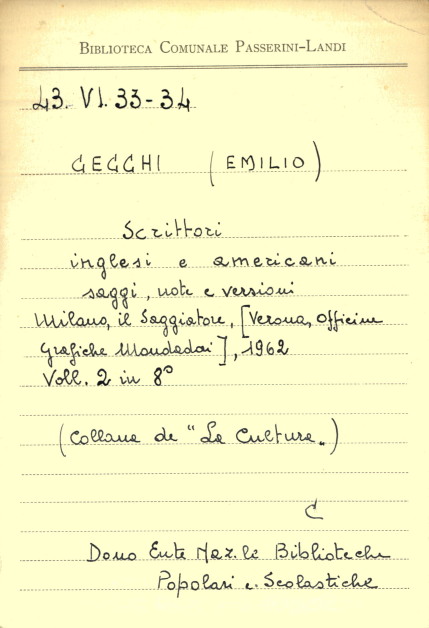 BIBLIOTECA COMUNALE PASSERINI-LANDI
L3. VI. 33-34
CECCHI (EMILIO)
Scrittori
inglesi e americani
saggi, note e versioni
Milano, il Saggiatore, [Verona, Officine
Grafiche Mondadori], 1962
Voll. 2 in 8°
(Collana de "La Cultura„)
C
Dono Ente Naz.le Biblioteche
Popolari e Scolastiche